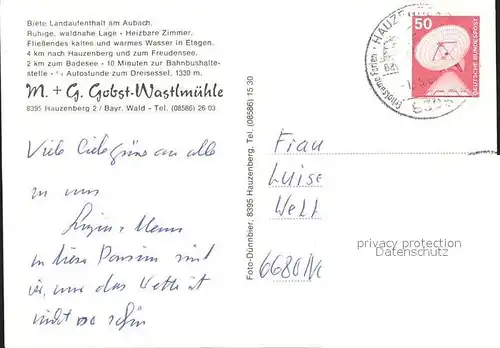 Biete Landaufenthalt am Aubach.
Ruhige, waldnahe Lage - Heizbare Zimmer.
Fließendes kaltes und warmes Wasser in Etagen.
4 km nach Hauzenberg und zum Freudensee.
2 km zum Badesee - 10 Minuten zur Bahnbushalte-
stelle - ½ Autostunde zum Dreisessel, 1330 m.
M. + G. Gobst-Wastlmühle
8395 Hauzenberg 2 / Bayr. Wald - Tel. (08586) 26 03
Viele liebe Grüße an alle
in dieser Pension sind
wir, nur das Wetter ist
nicht so schön
Foto-Dünnbier, 8395 Hauzenberg, Tel. (08586) 15 30
HAUZENBERG
Erholsame Ferien
8395
50
DEUTSCHE BUNDESPOST
Frau
Luise
Welt
6680 N
privacy protection
Datenschutz